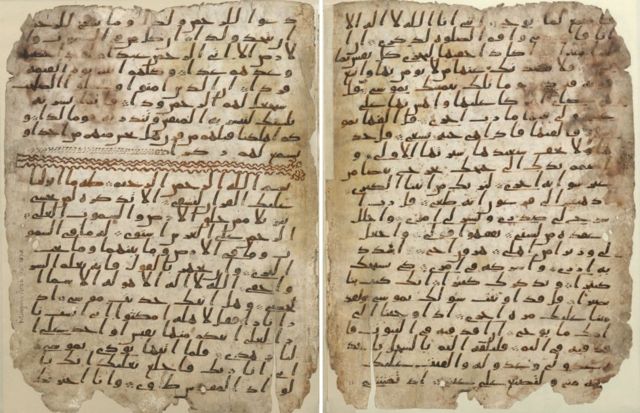 دعوا للرحمن ولدا وما ينبغي
لرحمن ان يتخذ ولدا ان كل من في السموت وا
لارض الا اتي الرحمن عبدا لقد احصيهم
وعدهم عدا وكلهم اتيه يوم القيمه
فردا ان الذين امنوا وعملوا الصلحت
سيجعل لهم الرحمن ودا فانما يسرنه
بلسنك لتبشر به المتقين وتنذر به قوما لدا و
كم اهلكنا قبلهم من قرن هل تحس منهم من احد او
تسمع لهم ركزا
بسم الله الرحمن الرحيم طه ما انزلنا
عليك القران لتشقى الا تذكره لمن يخشى
تنزيلا ممن خلق الارض والسموت العلى
الرحمن على العرش استوى له ما في السمو
ت وما في الارض وما بينهما وما تحت
الثرى وان تجهر بالقول فانه يعلم السر
واخفى الله لا اله الا هو له الاسما ا
لحسنى وهل اتيك حديث موسى اذ
را نارا فقل لاهله امكثوا اني انست نا
را لعلي اتيكم منها بقبس او اجد على ا
لنار هدى فلما اتيها نودي يموسى
اني انا ربك فاخلع نعليك انك با
لواد المقدس طوى وانا اختر
فاستمع لما يوحى انني انا الله لا اله الا
انا فاعبدني واقم الصلوه لذكري ان ا
لساعه اتيه اكاد اخفيها لتجزى كل نفس بما
تسعى فلا يصدنك عنها من لا يومن بها واتبع
هويه فتردى وما تلك بيمينك يموسى قل
هي عصاي اتوكا عليها واهش بها على
غنمي ولي فيها مارب اخرى قل القها يمو
سى فالقيها فاذا هي حيه تسعى قل خذ
ها ولا تخف سنعيدها سيرتها الاولى و
اضمم يدك الى جناحك تخرج بيضا من
غير سو ايه اخرى لنريك من ايتنا الكبرى
اذهب الى فرعون انه طغى قل رب ا
شرح لي صدري ويسر لي امري واحلل
عقده من لسني يفقهوا قولي واجعل
لي وزيرا من اهلي هرون اخي اشدد
به ازري واشركه في امري كي نسبحك
كثيرا ونذكرك كثيرا انك كنت بنا
بصيرا قل قد اوتيت سولك يموسى ولقد
مننا عليك مره اخرى اذ اوحينا الى
امك ما يوحى ان اقذفيه في التبوت فا
قذفيه في اليم فليلقه اليم بالسحل يا
خذه عدو لي وعدو له والقيت عليك
محبه مني ولتصنع على عيني اذ تمشي